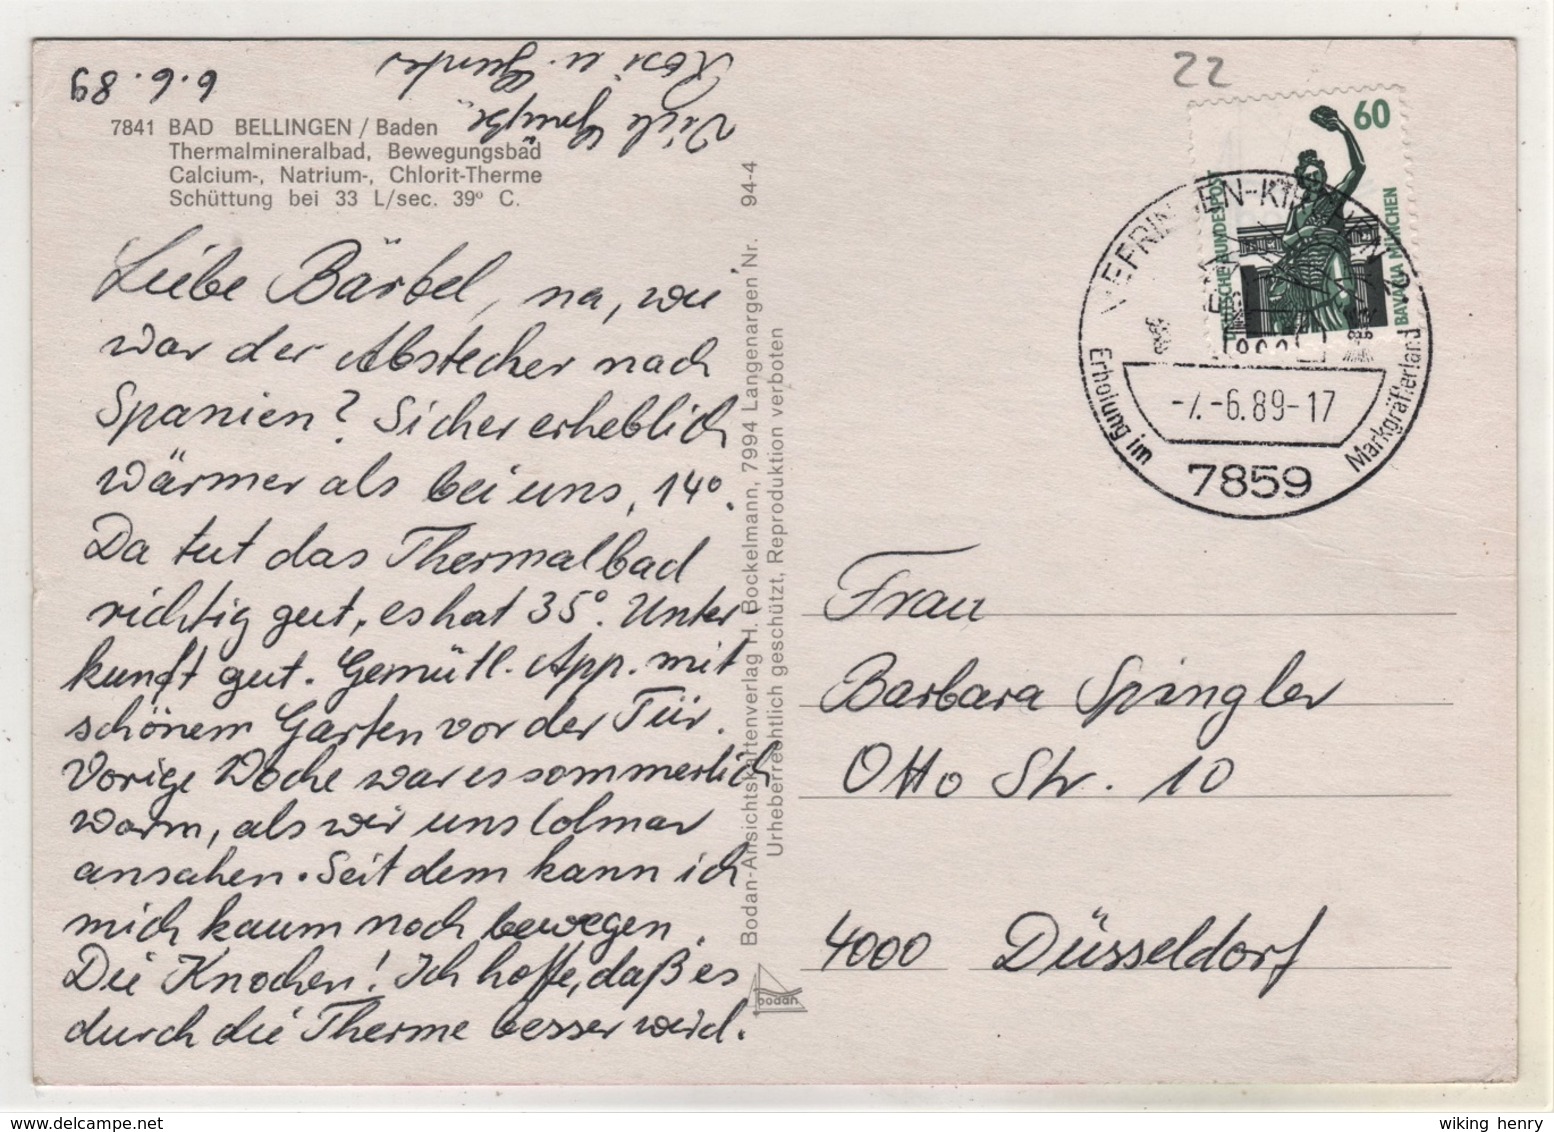 6.6.89
7841 BAD BELLINGEN / Baden
Thermalmineralbad, Bewegungsbad
Calcium-, Natrium-, Chlorit-Therme
Schüttung bei 33 L/sec. 39º C.
Liebe Bärbel, na, wie
war der Abstecher nach
Spanien? Sicher erheblich
wärmer als bei uns, 14°.
Da tut das Thermalbad
richtig gut, es hat 35°. Unter
kunft gut. Gemütl. App. mit
schönem Garten vor der Tür.
Vorige Woche war es sommerlich
warm, als wir uns Colmar
ansahen. Seit dem kann ich
mich kaum noch bewegen.
Die Knochen! Ich hoffe, daß es
durch die Therme besser wird.
Viele Grüße
Rosi u. Günter
Bodan-Ansichtskartenverlag H. Bockelmann, 7994 Langenargen Nr. 94-4
Urheberrechtlich geschützt, Reproduktion verboten
bodan
22
60
DEUTSCHE BUNDESPOST
BAVARIA MÜNCHEN
EFRINGEN-KIRCHEN
-7.-6.89-17
Erholung im Markgräflerland
7859
Frau
Barbara Spingler
Otto Str. 10
4000 Düsseldorf
wiking henry